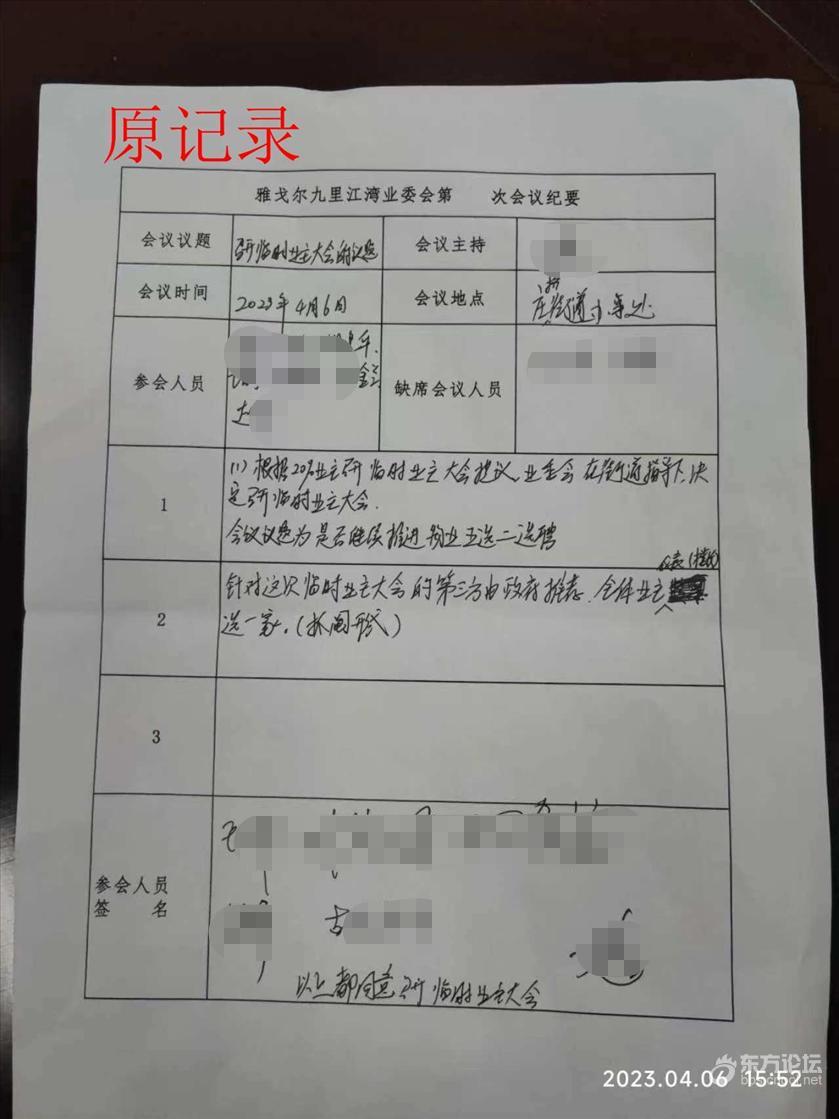 原记录
雅戈尔九里江湾业委会第 次会议纪要
会议议题
开临时业主大会的议题
会议主持
会议时间
2023年4月6日
会议地点
街道办事处
参会人员
缺席会议人员
1
(1)根据20%业主开临时业主大会提议,业委会在街道指导下,决
定开临时业主大会.
会议议题为是否继续推进物业五选二选聘
2
针对这次临时业主大会的第三方由政府推荐.全体业主
选一家.(抓阄形式)
3
参会人员
签 名
以上都同意开临时业主大会
东方论坛
2023.04.06 15:52